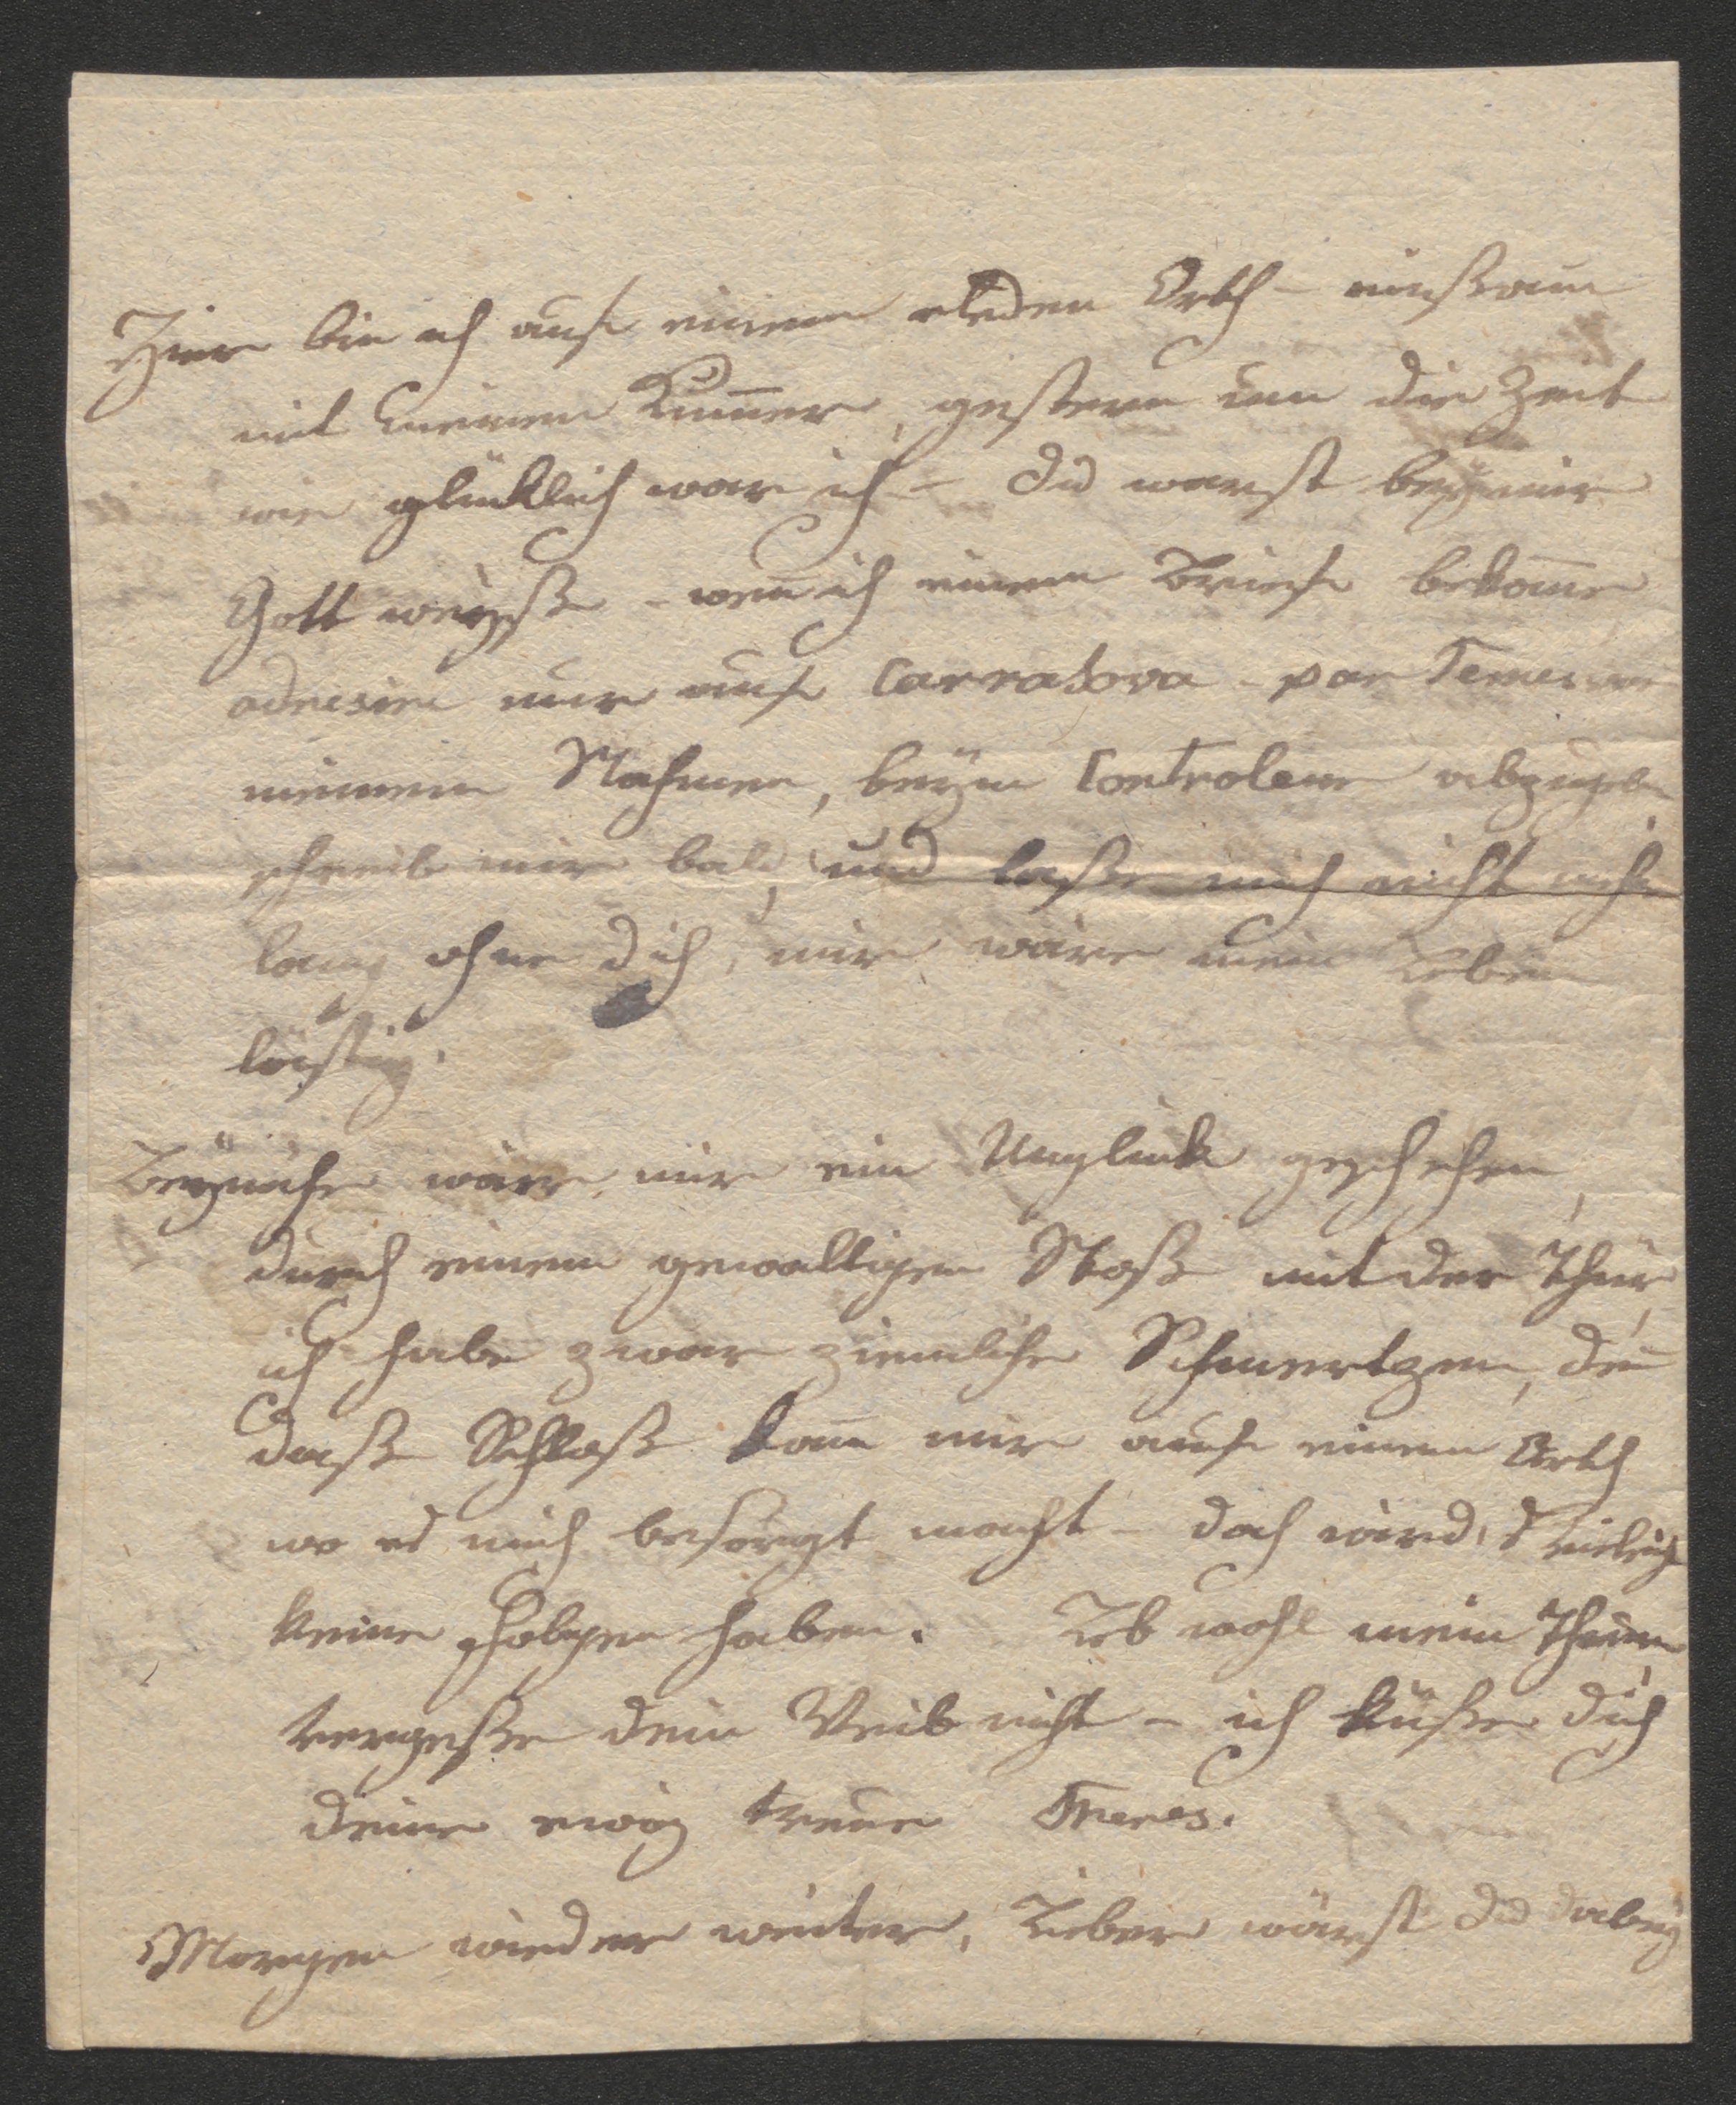 Hier bin ich auf einem elden Orth – einßam
mit meinem Kumer, gestern um die Zeit
wie glücklich war ich – du warst bey mir
Gott weyß – wen ich einen Brief bekome
adresire nur auf Carrasova – par Temeswar
meinem Nahmen, beym Controleur abzugeben
schreib mir bald, und laße mich nicht mehr
lang ohne dich, mir wäre mein Leben
lästig.
Beynahe wäre mir ein Unglück geschehen,
durch einen gewaltigen Stoß mit der Thür,
ich habe zwar ziemliche Schmertzen, den
daß Schloß kam mir auf einen Orth
wo es mich besorgt macht – doch wird's vieleicht
keine Folgen haben. Leb wohl mein Theurer
vergeße dein Weib nicht – ich küße dich
deine ewig treue Theres.
Morgen wieder weiter, Lieber wärst du dabey